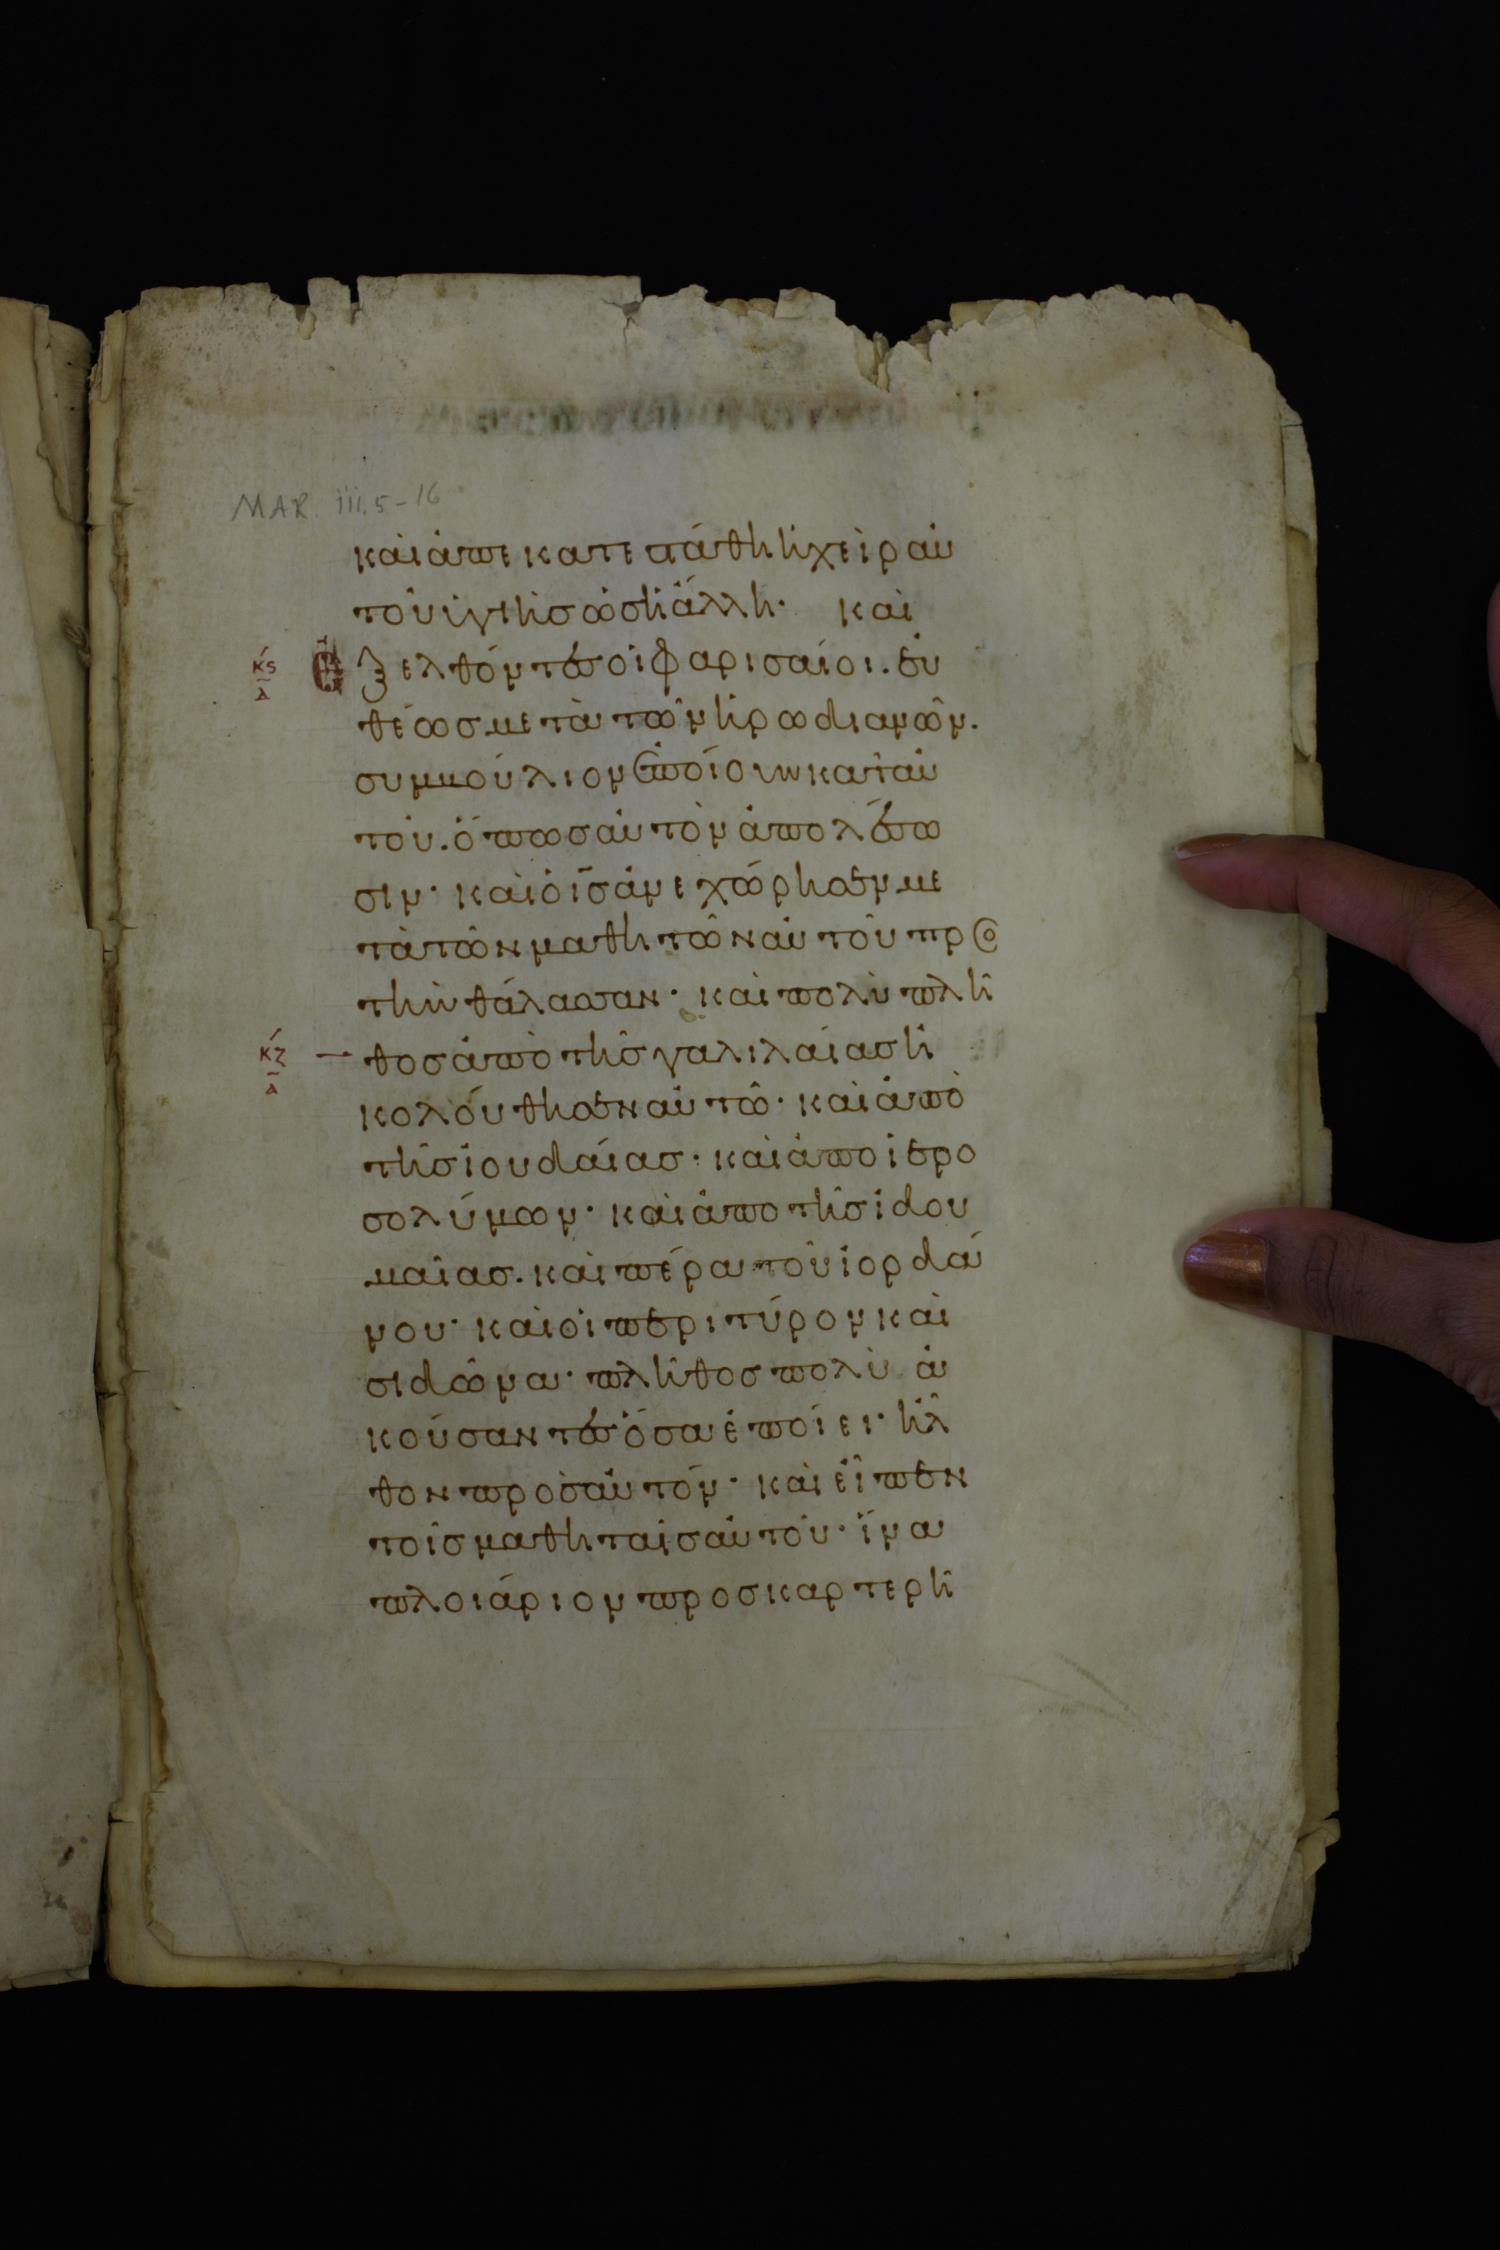 MAR. iii. 5-16
καὶ ἀπεκατεστάθη ἡ χεὶρ αὐ
τοῦ ὑγιὴς ὡς ἡ ἄλλη· καὶ
κϛ Δ ἐξελθόντες οἱ φαρισαίοι. εὐ
θέως μετὰ τῶν ἡρωδιανῶν.
συμβούλιον ἐποίουν κατ' αὐ
τοῦ. ὅπως αὐτὸν ἀπολέσω
σιν· καὶ ὁ ις ἀνεχώρησεν με
τὰ τῶν μαθητῶν αὐτοῦ προς
τὴν θάλασσαν· καὶ πολὺ πλῆ
κζ Δ θος ἀπὸ τῆς γαλιλαίας ἠ
κολούθησεν αὐτῶ· καὶ ἀπὸ
τῆς ἰουδαίας· καὶ ἀπο ἱερο
σολύμων· καὶ ἀπο τῆς ἰδου
μαίας. καὶ πέραν τοῦ ἰορδά
νου· καὶ οἱ περι τύρον καὶ
σιδῶνα· πλῆθος πολὺ ἀ
κούσαντες ὅσα ἐποίει· ἦλ
θον πρὸς αὐτόν· καὶ εἶπεν
τοῖς μαθηταῖς αὐτοῦ· ἵνα
πλοιάριον προσκαρτερῆ